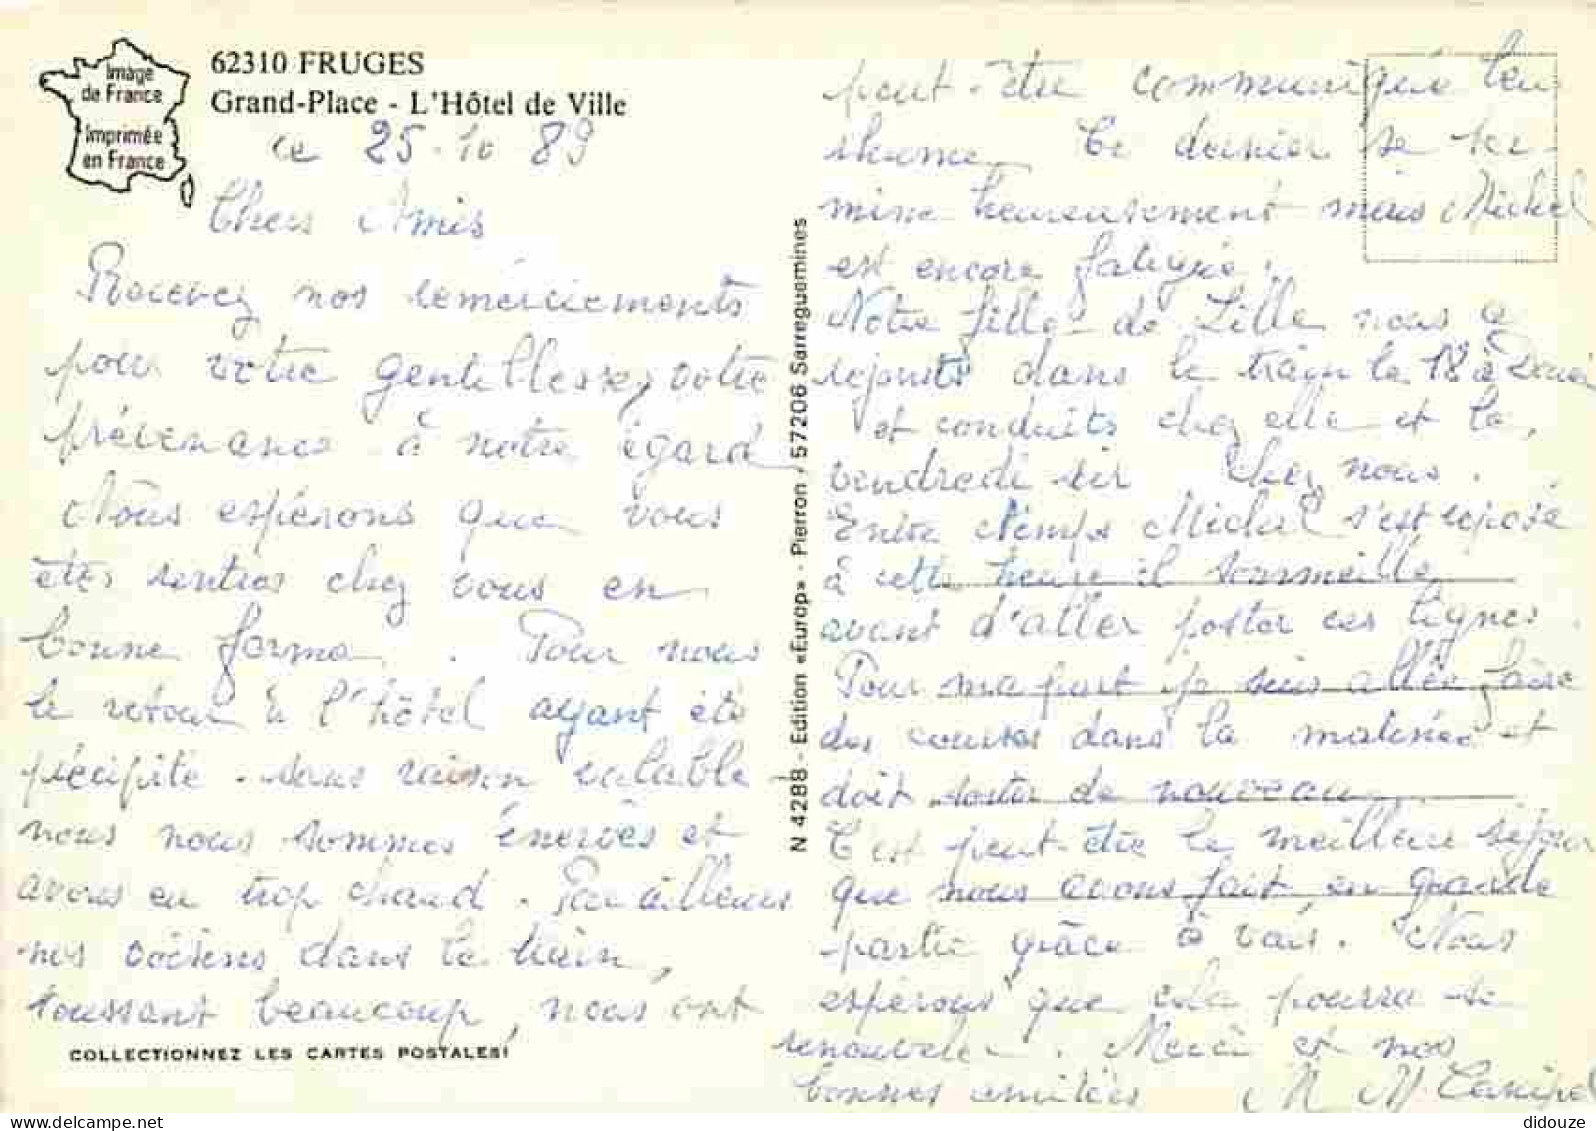 Image
de France
Imprimée
en France
62310 FRUGES
Grand-Place - L'Hôtel de Ville
ce 25-10 89
Chers Amis
Recevez nos remerciements
pour votre gentillesse, votre
prévenance à notre égard
Nous espérons que vous
êtes rentrés chez vous en
bonne forme . Pour nous
le retour à l'hôtel ayant été
précipité . sans raison valable
nous nous sommes énervés et
avons eu trop chaud . Par ailleurs
nos voisins dans le train,
toussant beaucoup, nous ont
COLLECTIONNEZ LES CARTES POSTALES!
N 4288 - Edition «Europ» - Pierron - 57206 Sarreguemines
peut-être communiqué leur
rhume. Ce dernier se ter-
mine heureusement mais Michel
est encore fatigué.
Notre fille de Lille nous a
rejoints dans le train le 18 à
et conduits chez elle et le
vendredi soir chez nous.
Entre temps Michel s'est reposé
à cette heure il sommeille
avant d'aller poster ces lignes.
Pour ma part je suis allée faire
des courses dans la matinée et
doit sortir de nouveau.
C'est peut-être le meilleur séjour
que nous avons fait, en grande
partie grâce à vous. Nous
espérons que cela pourra se
renouveler. Merci et nos
bonnes amitiés M M
didouze